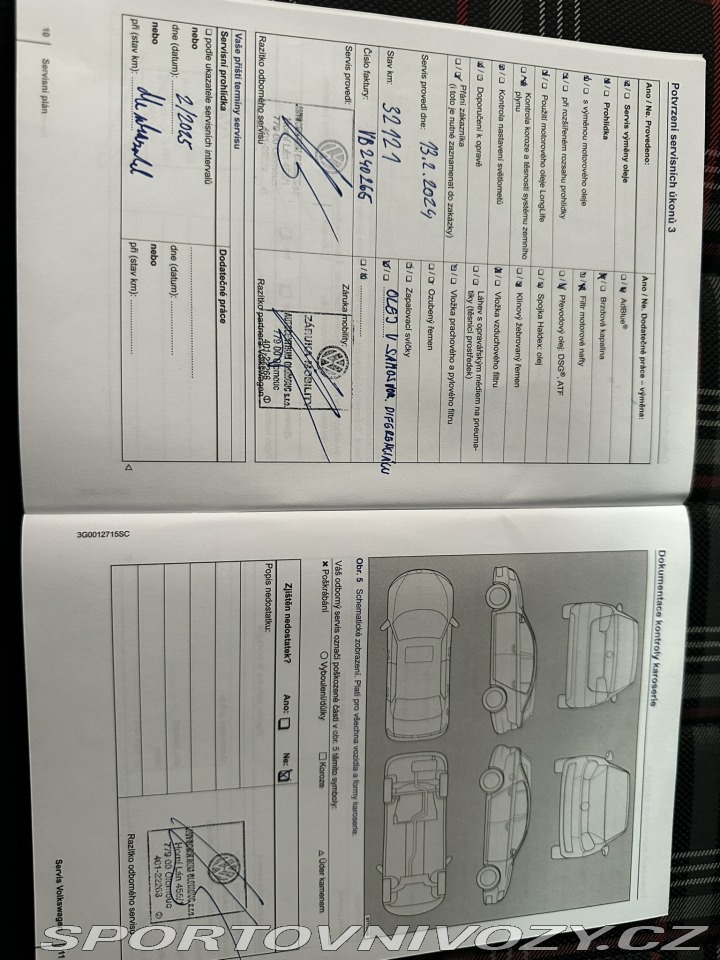 Potvrzení servisních úkonů 3
Ano / Ne. Provedeno:
Servis výměny oleje
Prohlídka
s výměnou motorového oleje
při rozšířeném rozsahu prohlídky
Použití motorového oleje LongLife
Kontrola koroze a těsnosti systému zemního plynu
Kontrola nastavení světlometů
Doporučení k opravě
Přání zákazníka
(i toto je nutné zaznamenat do zakázky)
Servis provedl dne: 13.2.2024
Stav km: 32121
Číslo faktury: VB240266
Servis provedl:
Razítko odborného servisu
Ano / Ne. Dodatečné práce – výměna:
AdBlue®
Brzdová kapalina
Filtr motorové nafty
Převodový olej: DSG®, ATF
Spojka Haldex: olej
Klínový žebrovaný řemen
Vložka vzduchového filtru
Láhev s opravářským médiem na pneuma-
tiky (těsnicí prostředek)
Vložka prachového a pylového filtru
Ozubený řemen
Zapalovací svíčky
OLEJ V SAMOSVOR. DIFERENCIÁLU
Záruka mobility:
ZÁRUKA MOBILITY
AUTOCENTRUM OLOMOUC s.r.o.
779 00 Olomouc
401-22268
Razítko partnera Volkswagen
Vaše příští termíny servisu
Servisní prohlídka
podle ukazatele servisních intervalů
nebo
dne (datum): 2/2025
nebo
při (stav km):
Dodatečné práce
dne (datum):
nebo
při (stav km):
10 Servisní plán
Dokumentace kontroly karoserie
Obr. 5 Schematické zobrazení. Platí pro všechna vozidla a formy karoserie.
Váš odborný servis označí poškozené části v obr. 5 těmito symboly:
Poškrábání
Vyboulení/důlky
Koroze
Úder kamenem
Zjištěn nedostatek? Ano: Ne:
Popis nedostatku:
AUTOCENTRUM OLOMOUC s.r.o.
Horní Lán
779 00 Olomouc
Razítko odborného servisu
3G0012715SC
Servis Volkswage 11
SPORTOVNIVOZY.CZ